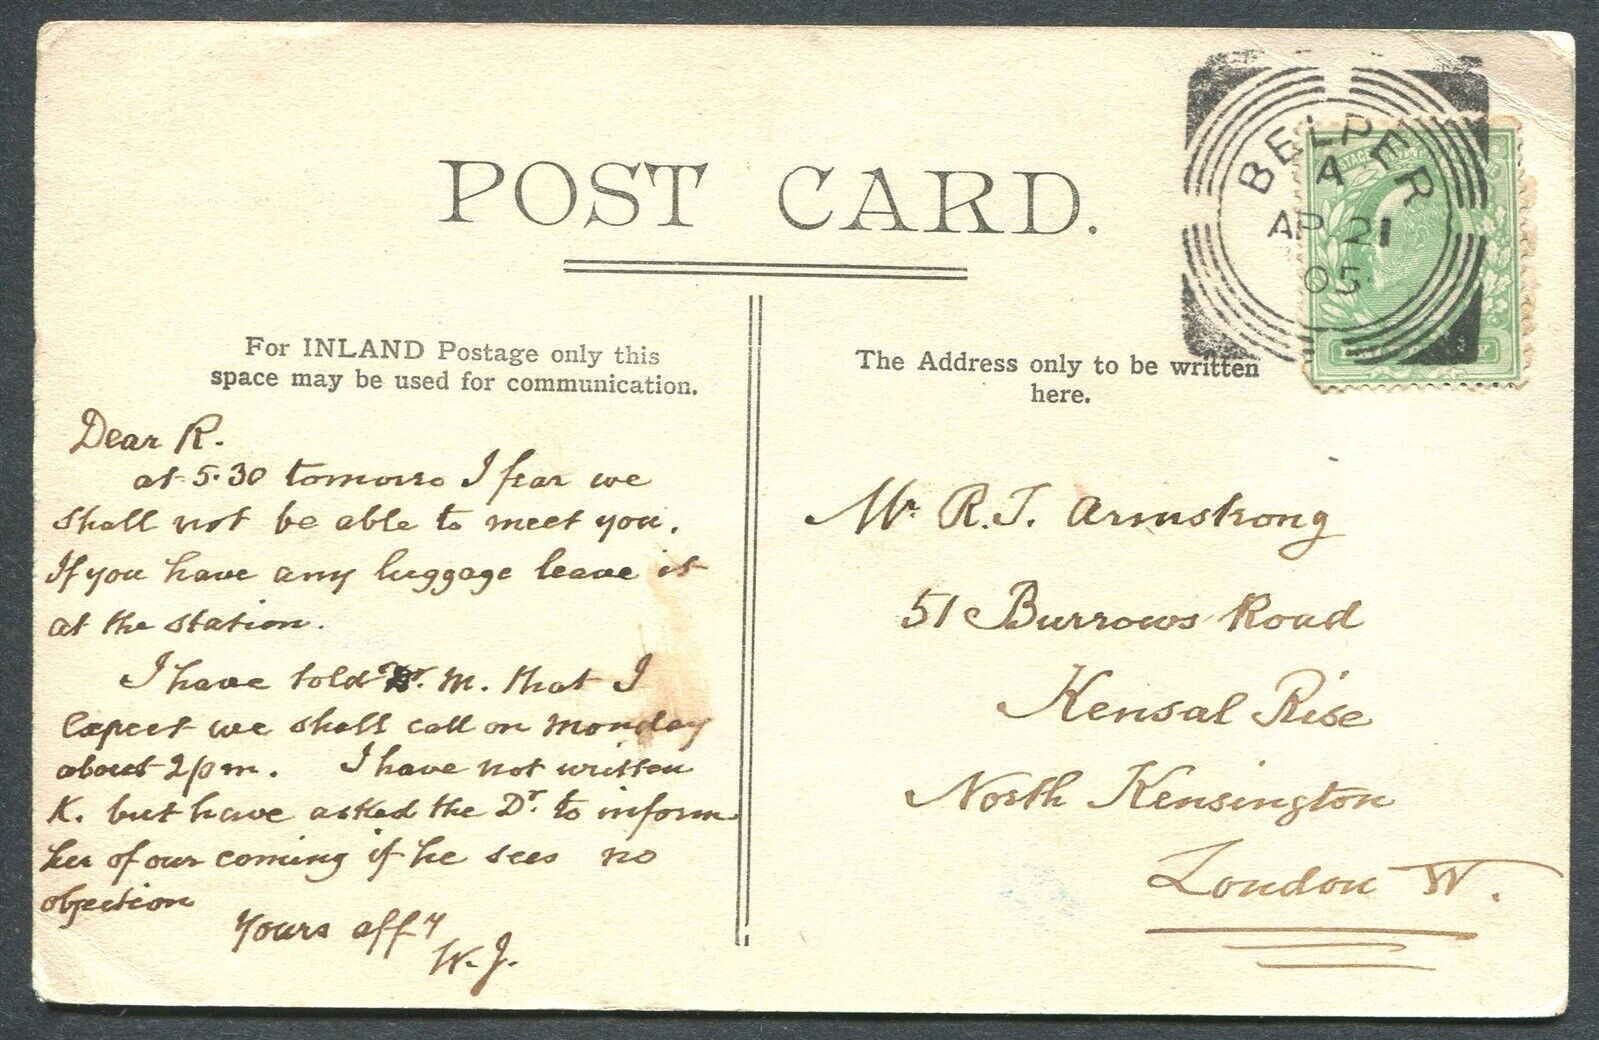 POST CARD.
BELPER
A
AP 21
05
For INLAND Postage only this
space may be used for communication.
The Address only to be written
here.
Dear R.
at 5.30 tomorro I fear we
shall not be able to meet you.
If you have any luggage leave it
at the station.
I have told Dr. M. that I
expect we shall call on Monday
about 2 pm. I have not written
K. but have asked the Dr. to inform
her of our coming if he sees no
objection
Yours affy
W. J.
Mr R. J. Armstrong
51 Burrows Road
Kensal Rise
North Kensington
London W.